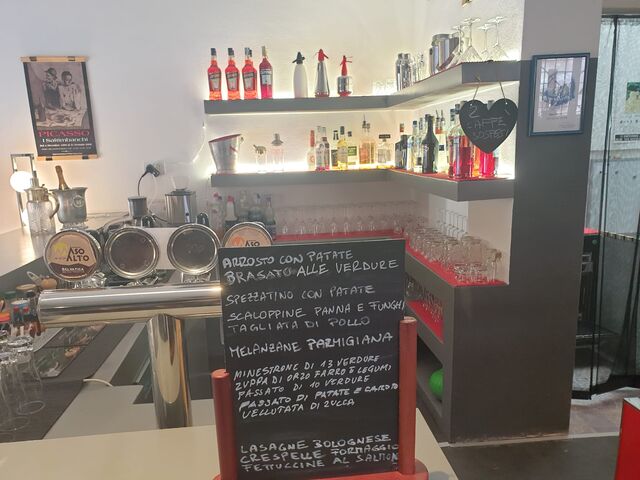 PICASSO
I Saltimbanchi
2
CAFFE'
SOSPESI
ASO
ALTO
ASO
ALTO
ARROSTO CON PATATE
BRASATO ALLE VERDURE
SPEZZATINO CON PATATE
SCALOPPINE PANNA E FUNGHI
TAGLIATA DI POLLO
MELANZANE PARMIGIANA
MINESTRONE DI 13 VERDURE
ZUPPA DI ORZO FARRO E LEGUMI
PASSATO DI 10 VERDURE
PASSATO DI PATATE E CAROTE
VELLUTATA DI ZUCCA
LASAGNE BOLOGNESE
CRESPELLE FORMAGGIO
FETTUCCINE AL SALMONE